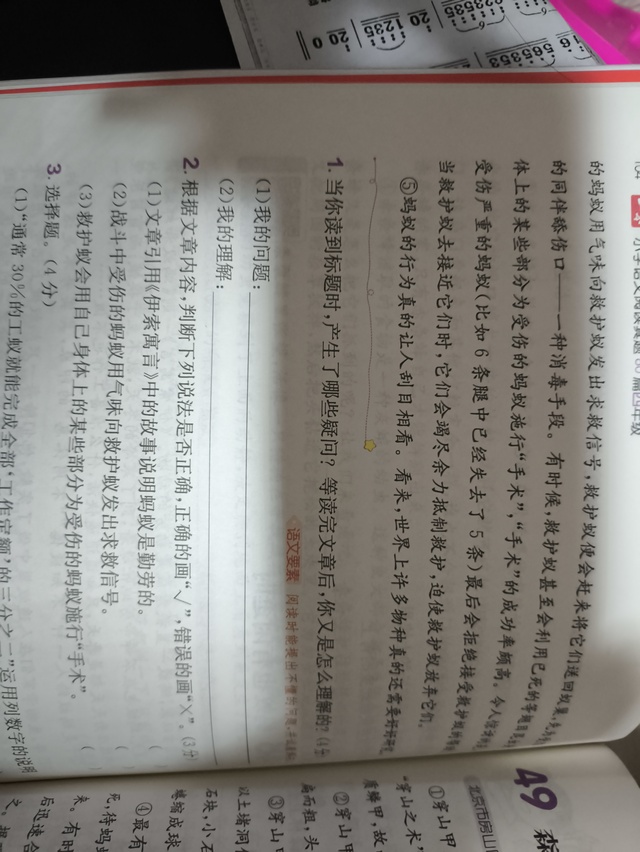 的蚂蚁用气味向救护蚁发出求救信号,救护蚁便会赶来将它们送回蚁巢,
的同伴舔伤口——一种消毒手段。有时候,救护蚁甚至会利用已死的等翅目
体上的某些部分为受伤的蚂蚁施行“手术”,“手术”的成功率颇高。令人惊讶
受伤严重的蚂蚁(比如6条腿中已经失去了5条)最后会拒绝接受救护蚁的
当救护蚁去接近它们时,它们会竭尽余力抵制救护,迫使救护蚁放弃它们。
⑤蚂蚁的行为真的让人刮目相看。看来,世界上许多物种真的还需要好好研究
语文要素 阅读时能提出不懂的问题,
1. 当你读到标题时,产生了哪些疑问?等读完文章后,你又是怎么理解的?(4分
(1)我的问题:
(2)我的理解:
2. 根据文章内容,判断下列说法是否正确,正确的画“√”,错误的画“×”。(3分
(1)文章引用《伊索寓言》中的故事说明蚂蚁是勤劳的。 (
(2)战斗中受伤的蚂蚁用气味向救护蚁发出求救信号。 (
(3)救护蚁会用自己身体上的某些部分为受伤的蚂蚁施行“手术”。 (
3. 选择题。(4分)
(1)“通常30%的工蚁就能完成全部‘工作定额’的三分之二”运用列数字的说明
49 森
北京市房山
①穿山甲
“穿山之术”
②穿山甲
扁而粗,头
③穿山
以土堵洞
球缩成球
石块,小石
④最有
死,待蚂蚁
来。有时
后迅速合